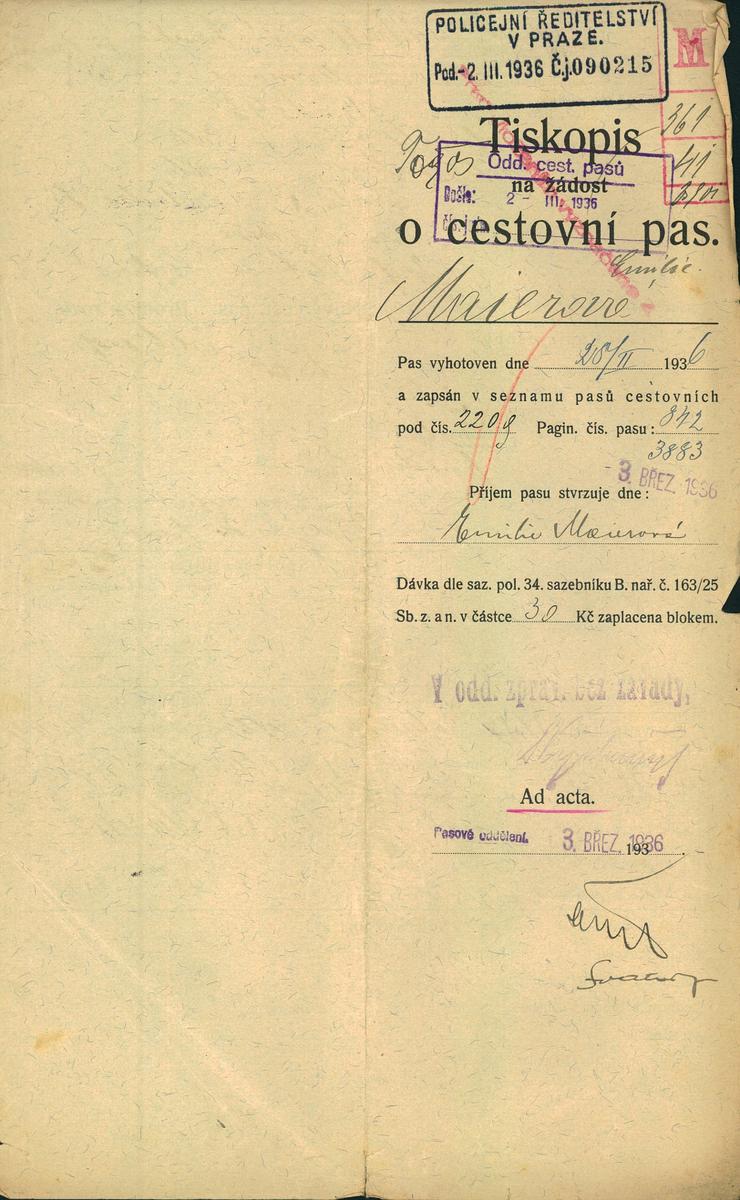 POLICEJNÍ ŘEDITELSTVÍ
V PRAZE.
Pod.-2. III. 1936 Č.j. 090215
M
361
41
Tiskopis
Odd. cest. pasů
na žádost
Došlo: 2 - III. 1936
o cestovní pas.
Emilie.
Maierová
Pas vyhotoven dne 28/II 1936
a zapsán v seznamu pasů cestovních
pod čís. 2209 Pagin. čís. pasu: 842
3883
- 3. BŘEZ. 1936
Příjem pasu stvrzuje dne:
Emilie Maierová
Dávka dle saz. pol. 34. sazebníku B. nař. č. 163/25
Sb. z. a n. v částce 30 Kč zaplacena blokem.
V odd. zpráv. bez závady,
Ad acta.
Pasové oddělení. 3. BŘEZ. 1936
193